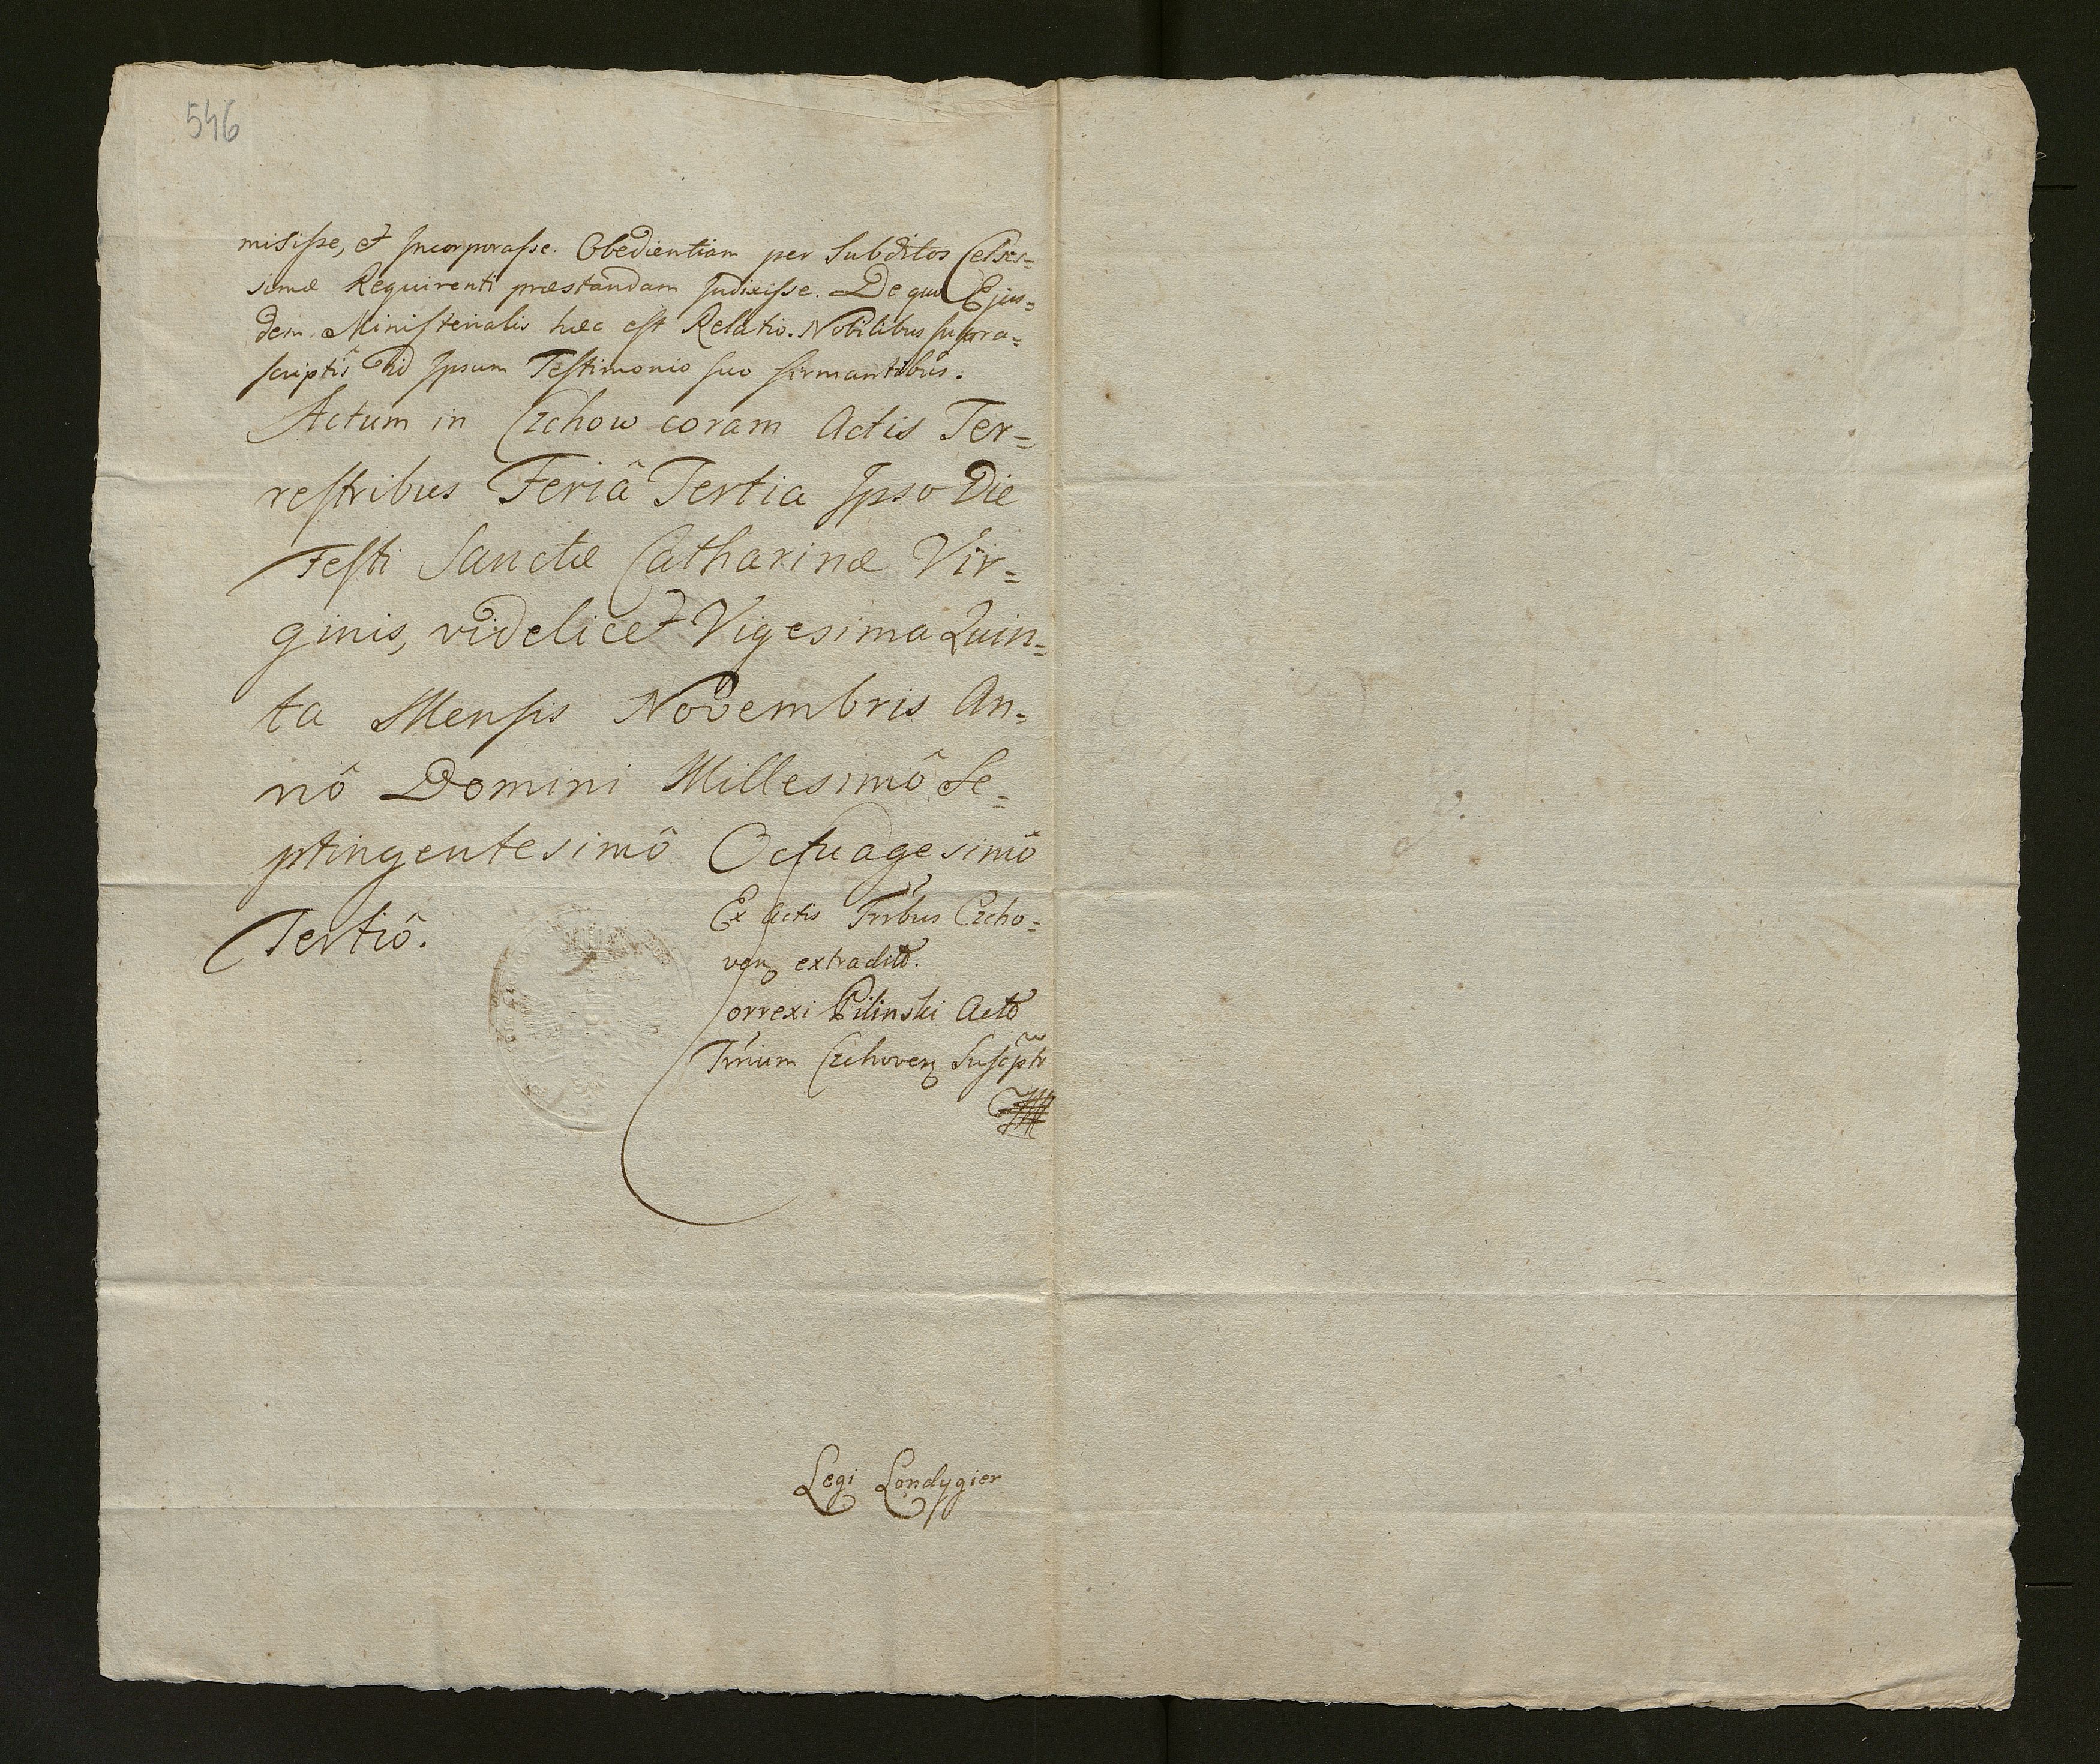 546
misisse, et Incorporasse. Obedientiam per Subditos Celsis=
simæ Requirenti præstandam Indixisse. De quo Ejus=
dem Ministerialis hæc est Relatio. Nobilibus supra=
scriptis id Ipsum Testimonio suo firmantibus.
Actum in Czchow coram Actis Ter=
restribus Feriâ Tertia Ipso Die
Festi Sanctæ Catharinæ Vir=
ginis, videlicet Vigesima Quin=
ta Mensis Novembris An=
nô Domini Millesimô Se=
ptingentesimô Octuagesimô
Tertiô.
Ex Actis Trrbus Czcho=
ven extradit.
Correxi Pilinski Act
Trrium Czchoven Suscpt
Legi Londygier